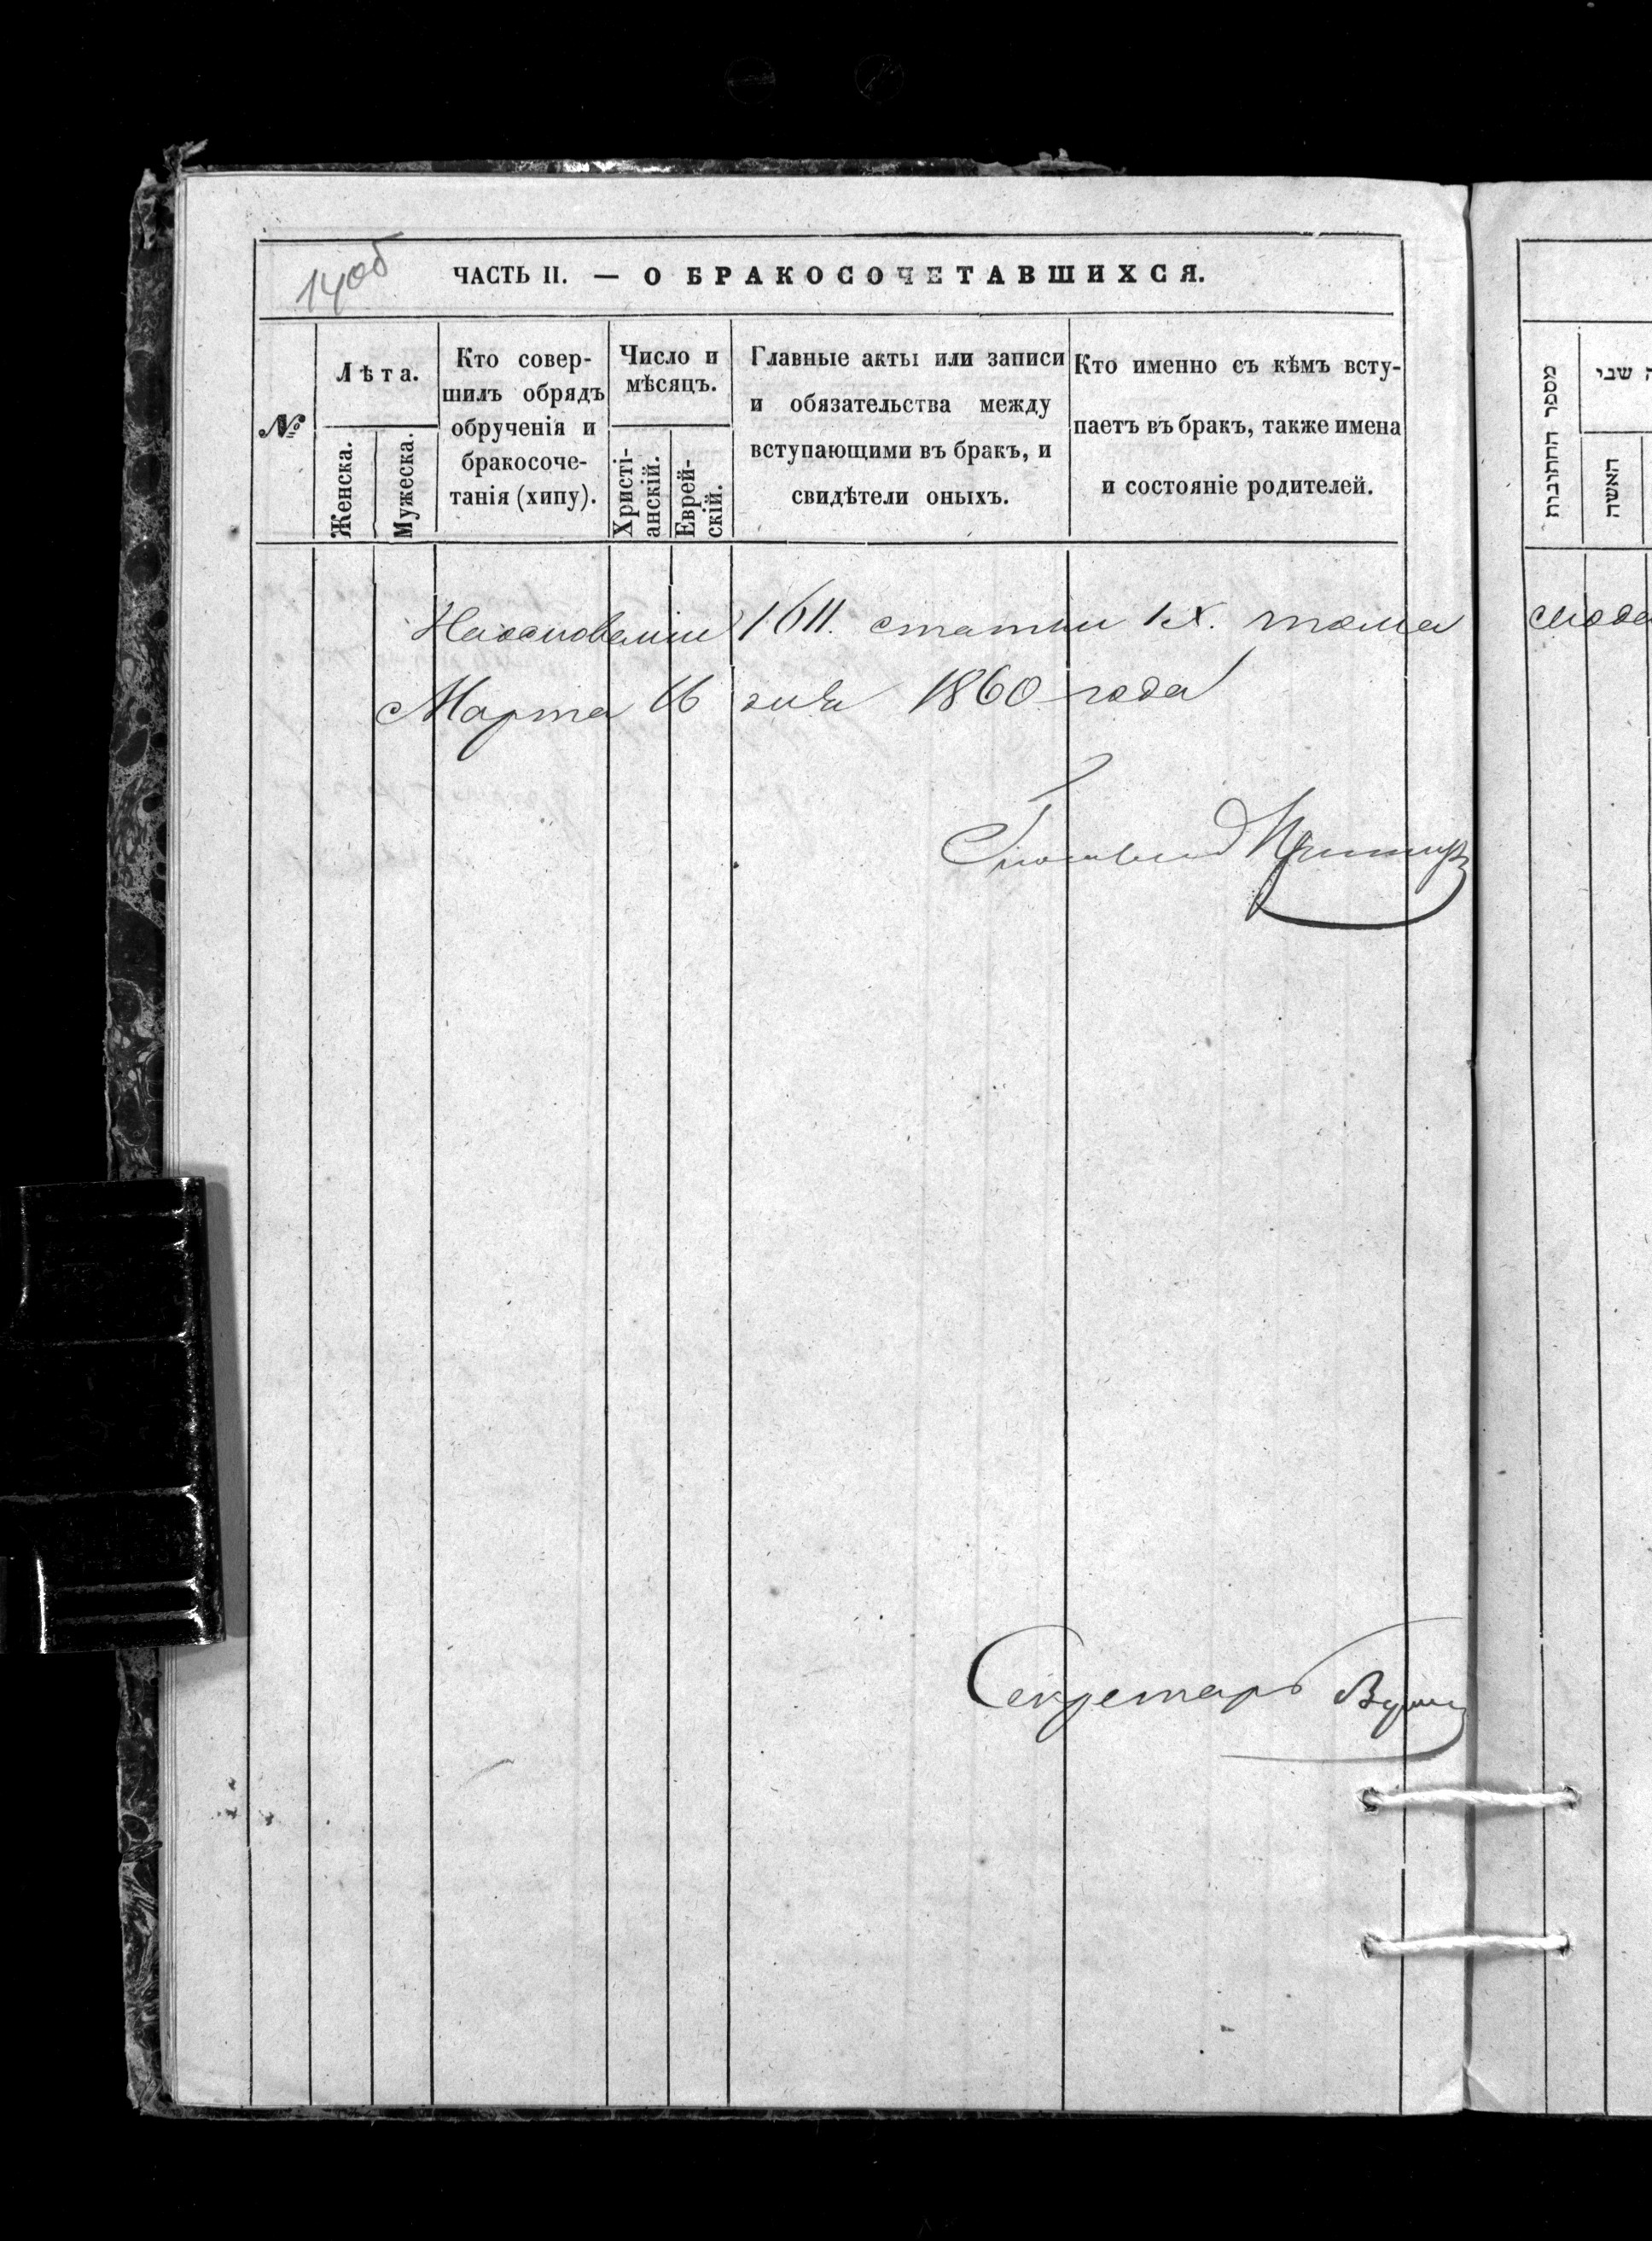 14об
ЧАСТЬ II. — О БРАКОСОЧЕТАВШИХСЯ.
№
Лѣта.
Женска.
Мужеска.
Кто совер-
шилъ обрядъ
обрученія и
бракосоче-
танія (хипу).
Число и
мѣсяцъ.
Христі-
анскій.
Еврей-
скій.
Главные акты или записи
и обязательства между
вступающими въ бракъ, и
свидѣтели оныхъ.
Кто именно съ кѣмъ всту-
паетъ въ бракъ, также имена
и состояніе родителей.
На основаніи 1611. статьи IX. тома
Марта 16 дня 1860 года
Секретарь
מספר החתונות
שני
האשה